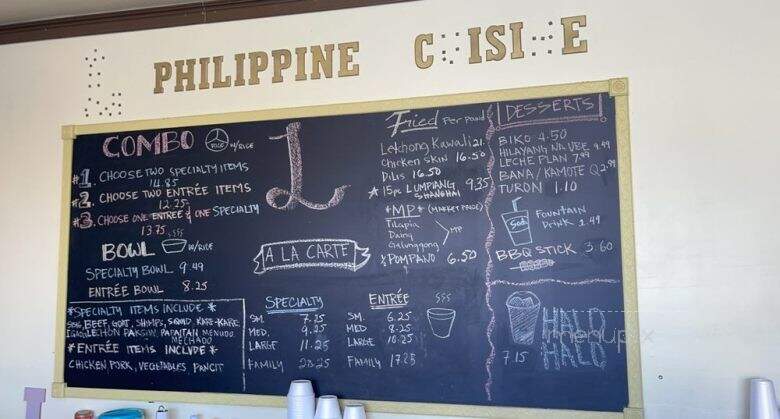 PHILIPPINE C ISI E
COMBO RICE W/RICE
#1. CHOOSE TWO SPECIALTY ITEMS
14.85
#2. CHOOSE TWO ENTRÉE ITEMS
12.25
#3. CHOOSE ONE ENTREE & ONE SPECIALTY
13.75
BOWL W/RICE
SPECIALTY BOWL 9.49
ENTRÉE BOWL 8.25
*SPECIALTY ITEMS INCLUDE *
BEEF, GOAT, SHRIMPS, SQUID, KARE-KARE,
LECHON PAKSIW, PAPAITAN, MENUDO,
MECHADO
*ENTRÉE ITEMS INCLUDE *
CHICKEN PORK, VEGETABLES PANCIT
L
A LA CARTE
SPECIALTY
SM. 7.25
MED. 9.25
LARGE 11.25
FAMILY 20.25
ENTRÉE
SM. 6.25
MED 8.25
LARGE 10.25
FAMILY 17.25
Fried Per Pound
Letchong Kawali 21.
Chicken SKIN 16.50
Dilis 16.50
15pc LUMPIANG 9.35
SHANGHAI
*MP* (MARKET PRICE)
Tilapia
Daing MP
Galunggong
POMPANO 6.50
DESSERTS
BIKO 4.50
HILAYANG NA UBE 9.99
LECHE PLAN 7.99
BANA/KAMOTE Q 2.99
TURON 1.10
Soda
FOUNTAIN
DRINK 1.49
BBQ STICK 3.60
HALO
HALO
7.15
menupix